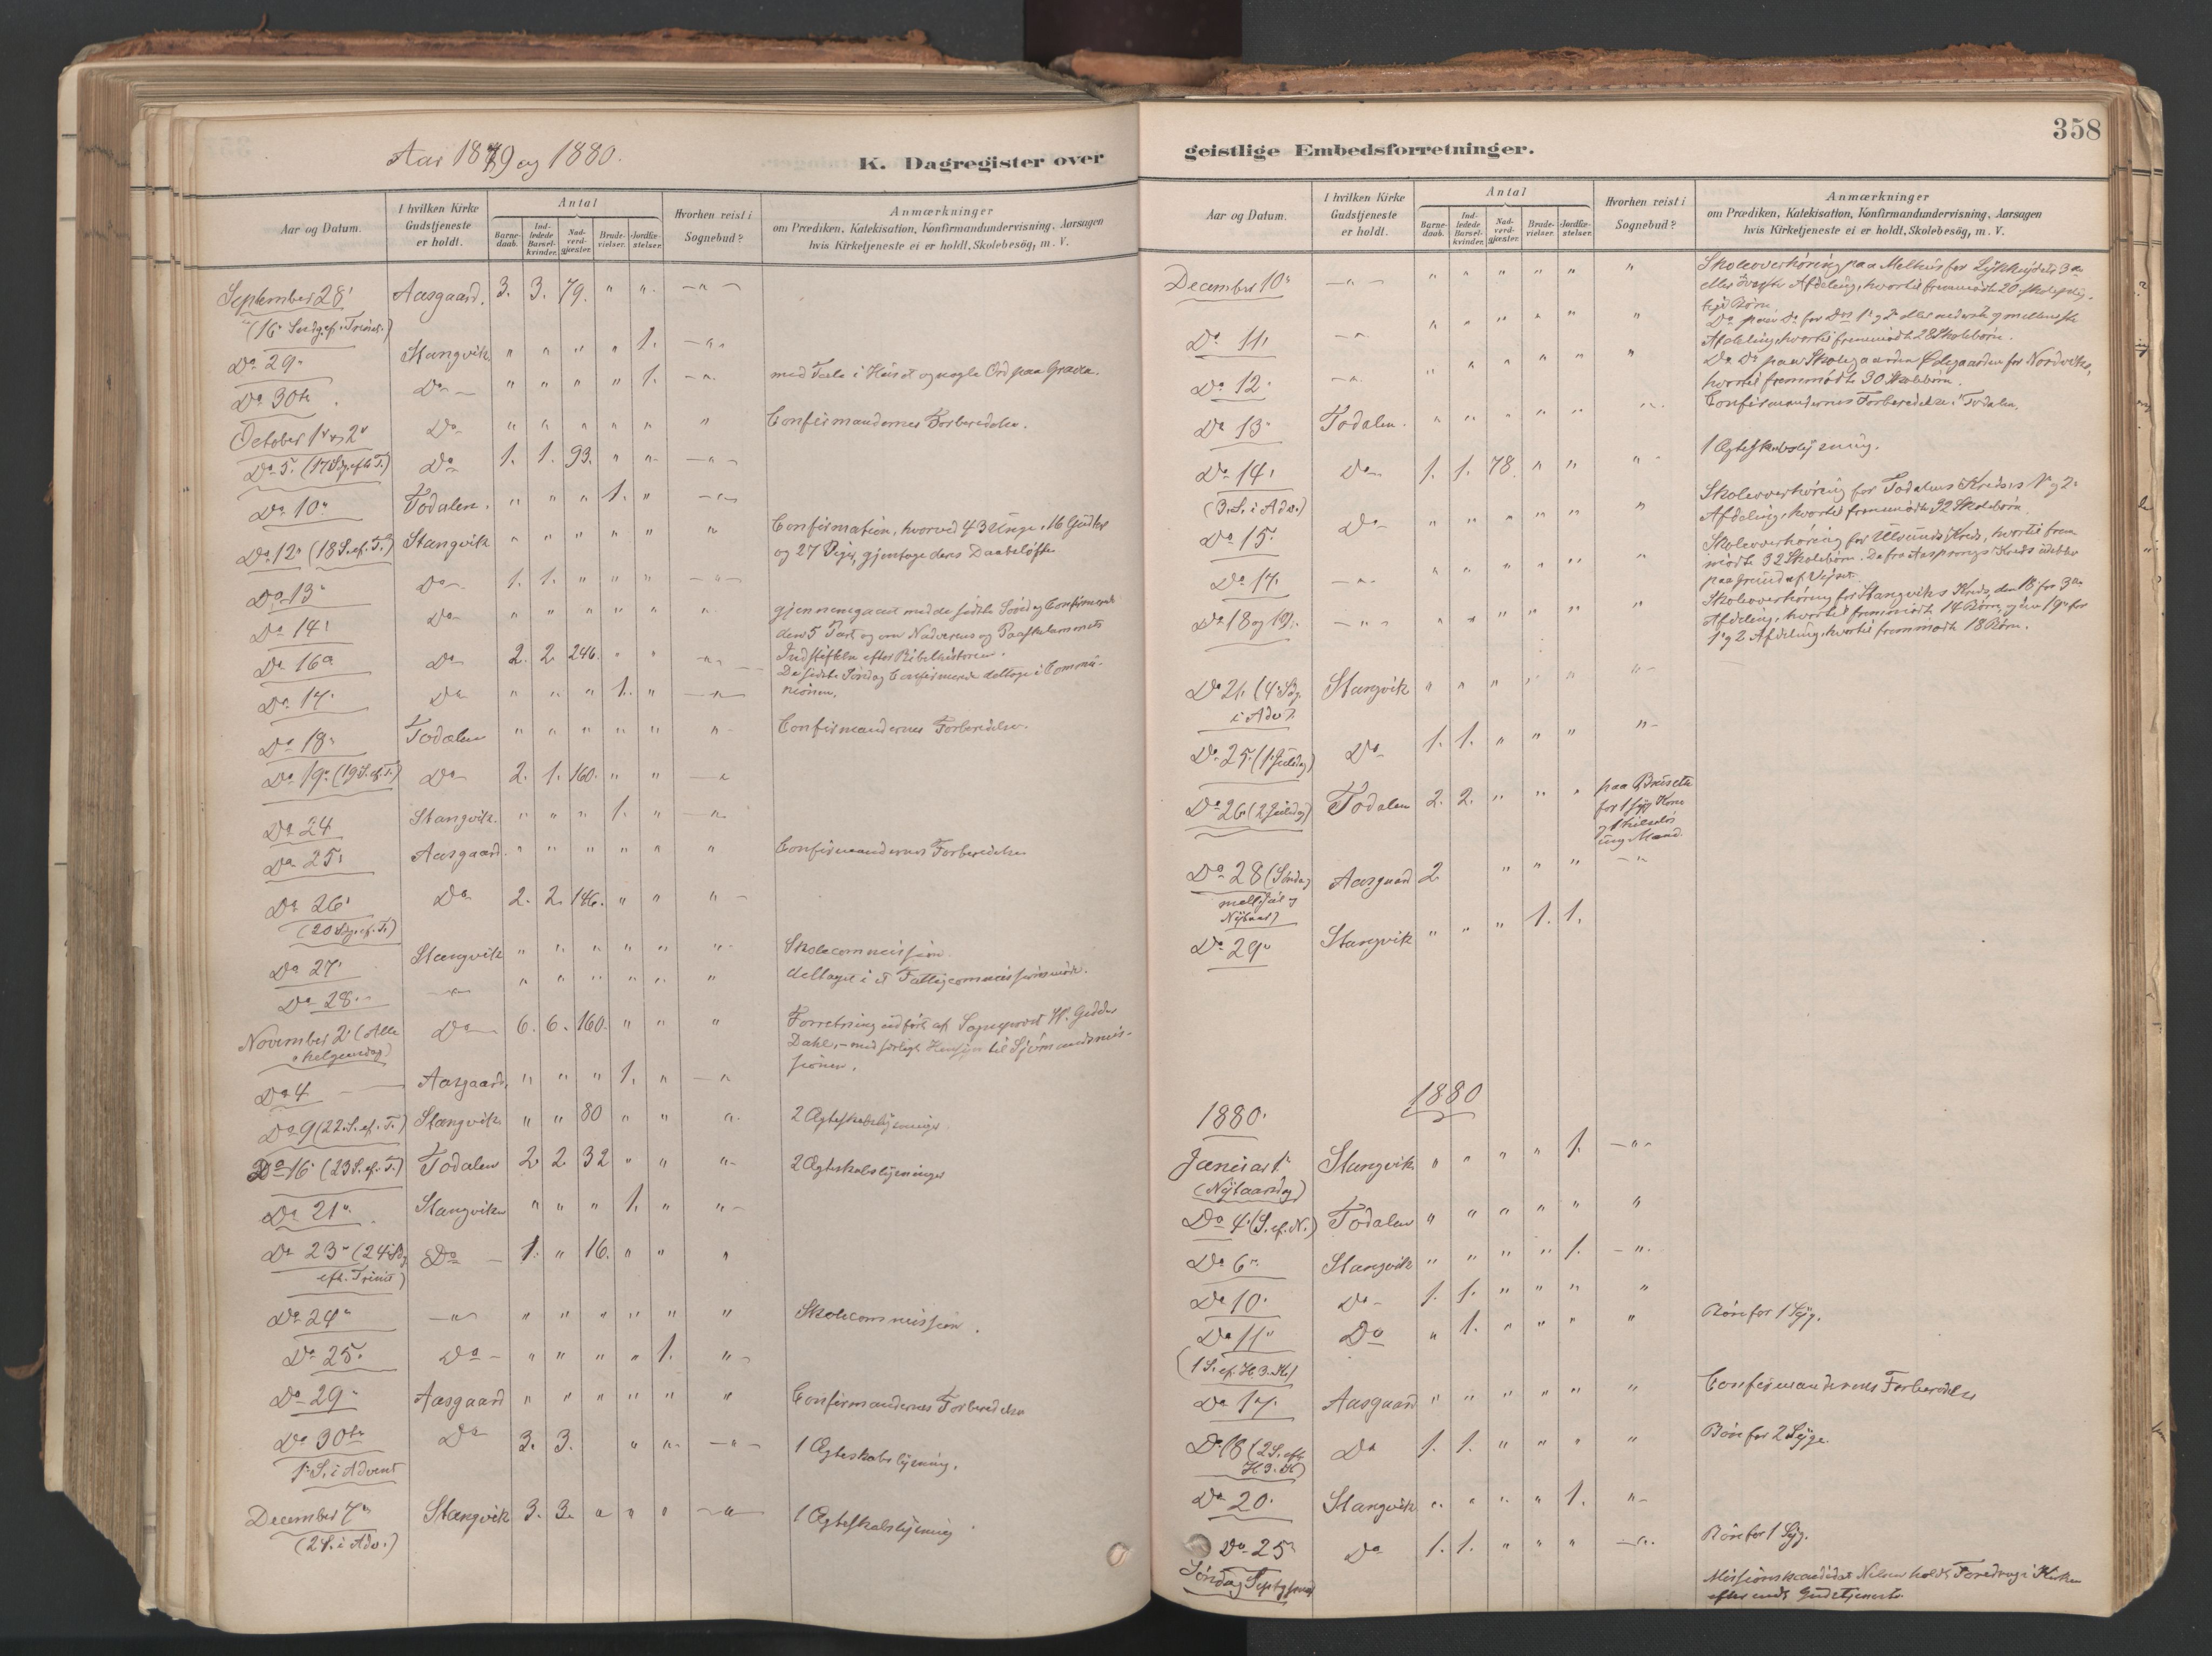 Aar 1879 og 1880.
K. Dagregister over
Aar og Datum.
I hvilken Kirke Gudstjeneste er holdt.
Antal
Barne-daab.
Ind-ledede Barsel-kvinder.
Nad-verd-gjæster.
Brude-vielser.
Jordfæ-stelser.
Hvorhen reist i Sognebud?
Anmærkninger
om Prædiken, Katekisation, Konfirmandundervisning, Aarsagen
hvis Kirketjeneste ei er holdt, Skolebesøg, m. V.
September 28' Aasgaard. 3. 3. 79. " " -"-
(16' Søndg. ef. Trinit.)
Do 29' Stangvik " " " " 1. -"-
Do 30te Do " " " " 1. -"- med Tale i Huset og nogle Ord paa Graven.
October 1' og 2' Do " " " " " " Confirmandernes Forberedelse.
Do 5. (17 Sg. eft T.) Do 1. 1. 93. " " -"-
Do 10' Todalen. " " " 1. " -"-
Do 12' (18 S. ef. T.) Stangvik " " " " " " Confirmation, hvorved 43 Unge, 16 Gutter
og 27 Piger, gjentoge deres Daabsløfte
Do 13' Do 1. 1. " " " -"-
Do 14' Do " " " " " " gjennemgaaet med de sidste Søndag Confirmerede
den 5 Part og om Nadveren og Paaskelammets
Do 16' Do 2. 2. 246. " " -"- Indstiftelse efter Bibelhistorien.
De sidste Søndag Confirmerede deltoge i Commu-
Do 17' Do " " " 1. " -"- nionen.
Do 18' Todalen " " " " " " Confirmandernes Forberedelse.
Do 19' (19 S. ef. T.) Do 2. 1. 160. " " -"
Do 24 Stangvik " " " 1. " -"-
Do 25' Aasgaard. " " " " " " Confirmandernes Forberedelse
Do 26' Do 2. 2. 146. " " "-
(20 Sg. ef. T.)
Do 27' Stangvik " " " " " " Skolecommission
Do 28' -"- " " " " " " deltaget i et Fattigcommissionsmøde.
November 2' (Alle Do 6. 6. 160. " " " Forretning udført af Sogneprest W. Geddes
Helgensdag) Dahl, – med særligt Hensyn til Sjømandsmis-
sionen.
Do 4 Aasgaard. " " " 1. " -"
Do 9 (22. S. ef. T.) Stangvik " " 80 " " " 2 Ægteskabslysninger
Do 16' (23 S. ef. T.) Todalen 2 2 32 " " "- 2 Ægteskabslysninger
Do 21' Stangvik " " " 1. " "-
Do 23' (24' Sdg. Do 1. " 16. " " "
eft. Trinit)
Do 24' -"- " " " " " " Skolecommission.
Do 25' Do " " " " 1. "-
Do 29' Aasgaard " " " " " " Confirmandernes Forberedelse
Do 30te Do 3. 3. " " -"- 1 Ægteskabslysning.
1' S. i Advent
December 7' Stangvik 3. 3. " " " -"- 1 Ægteskabslysning
(2 S. i Adv.)
358
geistlige Embedsforretninger.
Aar og Datum.
I hvilken Kirke Gudstjeneste er holdt.
Antal
Barne-daab.
Ind-ledede Barsel-kvinder.
Nad-verd-gjæster.
Brude-vielser.
Jordfæ-stelser.
Hvorhen reist i Sognebud?
Anmærkninger
om Prædiken, Katekisation, Konfirmandundervisning, Aarsagen
hvis Kirketjeneste ei er holdt, Skolebesøg, m. V.
December 10' -"- " " " " " " Skoleoverhøring paa Melhus for 3die
eller øverste Afdeling, hvortil fremmødte 20
Børn
Do 11' -"- " " " " " " Do paa Do for Ds 1' og 2' eller nederste og mellemste
Afdeling, hvortil fremmødte 28 Skolebørn.
Do 12' -"- " " " " " " Do Do paa Skolegaarden Ødegaarden for Nordvik,
hvortil fremmødte 30 Skolebørn.
Do 13' Todalen. " " " " " " Confirmandernes Forberedelse i Todalen.
Do 14' Do 1. 1. 78. " " "- 1 Ægteskabslysning.
(3. S. i Adv.)
Do 15' Do " " " " " " Skoleoverhøring for Todalens Kreds's 1' og 2'
Afdeling, hvortil fremmødte 32 Skolebørn.
Do 17' -"- " " " " " " Skoleoverhøring for Ulvunds Kreds, hvortil frem-
mødte 32 Skolebørn. De fra Aasprongs Kreds udeblev
paa Grund af Vejret.
Do 18 og 19' -"- " " " " " " Skoleoverhøring for Stangviks Kreds, den 18' for 3die
Afdeling, hvortil fremmødte 14 Børn, og den 19' for
1' og 2 Afdeling, hvortil fremmødte 18 Børn.
Do 21' (4' Sdg. Stangvik " " " " " "-
i Adv.)
Do 25' (1. Juledag) Do 1. 1. " " " "-
Do 26' (2 Juledag) Todalen 2. 2. " " " paa Bruset
for 1 syg Kone
og 1
ung Mand.
Do 28 (Søndag Aasgaard 2 " " " -"
mell. Jul og
Nytaar)
Do 29' Stangvik " " " 1. 1.
1880
1880.
Januar 1' Stangvik " " " " 1. -"-
(Nytaarsdag)
Do 4' (S. ef. N.) Todalen " " " " " "
Do 6' Stangvik " " " " 1. -"-
Do 10' Do 1. 1. " " " "
Do 11' Do " 1. " " " " Bøn for 1 Syg.
(1 S. ef. H. 3. K.)
Do 17. Aasgaard " " " " " " Confirmandernes Forberedelse
Do 18 (2 S. eft. Do 1. 1. " " " " Bøn for 2 Syge.
H. 3. K)
Do 20' Stangvik " " " " 1. "-
Do 25' Do 1. 1. " " " -"- Bøn for 1 Syg.
Søndag Septuages. Missionskandidat Nilsen holdt Foredrag i Kirken
efter endt Gudstjeneste.